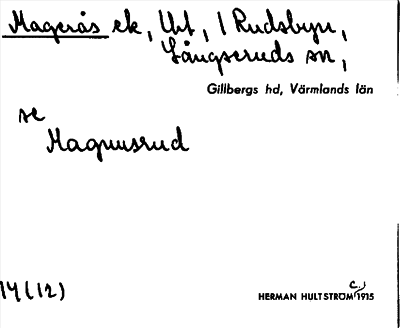 Magerås ek, Ut, / Rudsbyn,
Långseruds sn,
Gillbergs hd, Värmlands län
se
Magnusrud
14(12)
HERMAN HULTSTRÖM c.) 1915